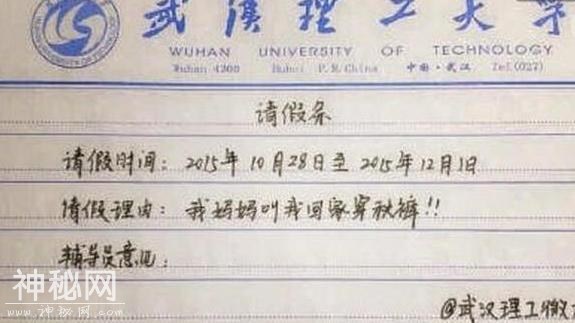 武汉理工大学
WUHAN UNIVERSITY OF TECHNOLOGY
Wuhan 4300 Hubei P.R.China 中国·武汉 Tel.(027)
请假条
请假时间：2015年10月28日至2015年12月1日
请假理由：我妈妈叫我回家穿秋裤!!
辅导员意见：
神秘网
www.shenmi.com
@武汉理工微